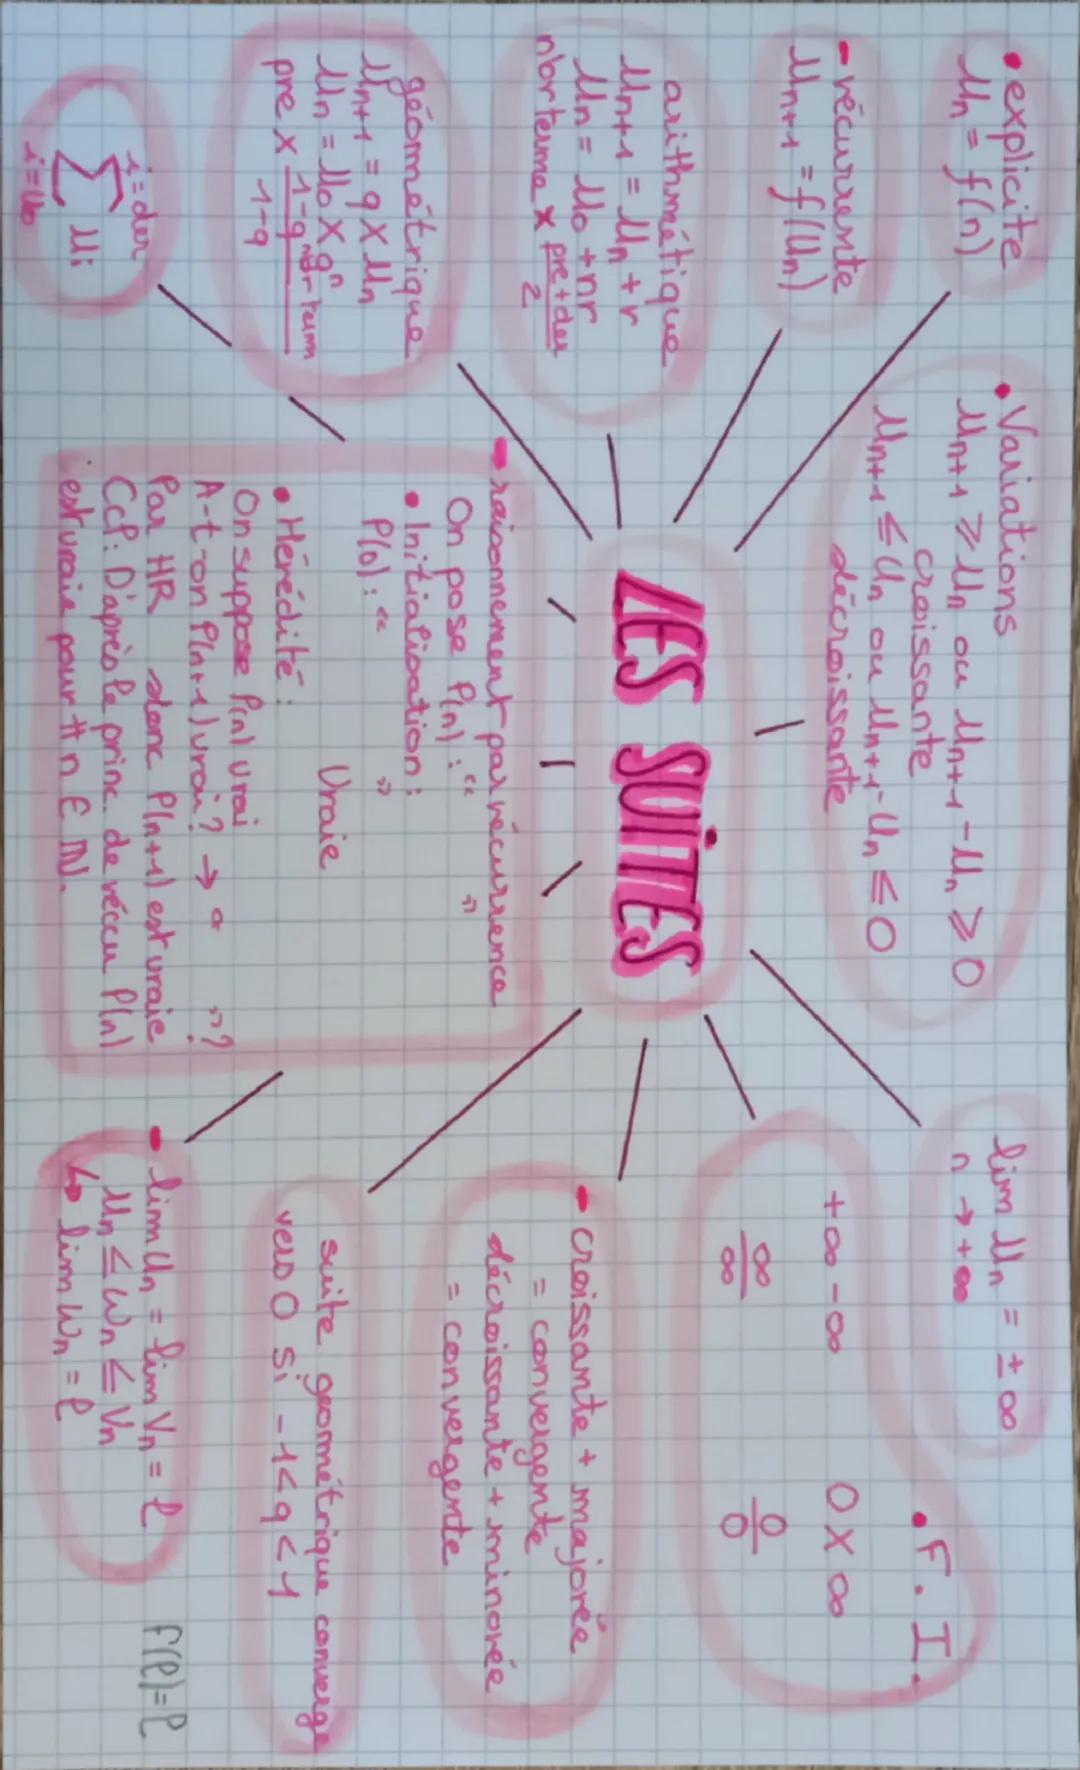 • explicite
Un = f(n)
- récurrente
Un+1 = f(Un)
arithmétique
Un+1 = Un + r
Un = U0 + nr
nbr terme × (pre + der)/2
géométrique
Un+1 = q × Un
Un = U0 × qⁿ
pre × (1-q^nbr term)/(1-q)
i=der
Σ Ui
i=U0
• Variations
Un+1 ⩾ Un ou Un+1 - Un ⩾ 0
croissante
Un+1 ≤ Un ou Un+1 - Un ≤ 0
décroissante
LES SUITES
- raisonnement par récurrence
On pose P(n) : " "
• Initialisation :
P(0) : " "
Vraie
• Hérédité :
On suppose P(n) vrai
A-t-on P(n+1) vrai ? → " " ?
Par HR donc P(n+1) est vraie
Ccl : D'après le princ. de réccu P(n)
est vraie pour tt n ∈ ℕ.
lim Un = ± ∞
n → +∞
• F. I.
+∞ -∞ 0 × ∞
∞/∞ 0/0
- croissante + majorée
= convergente
décroissante + minorée
= convergente
suite géométrique converge
vers 0 si -1 < q < 1
- lim Un = lim Vn = ℓ
Un ≤ Wn ≤ Vn
↳ lim Wn = ℓ
f(ℓ) = ℓ